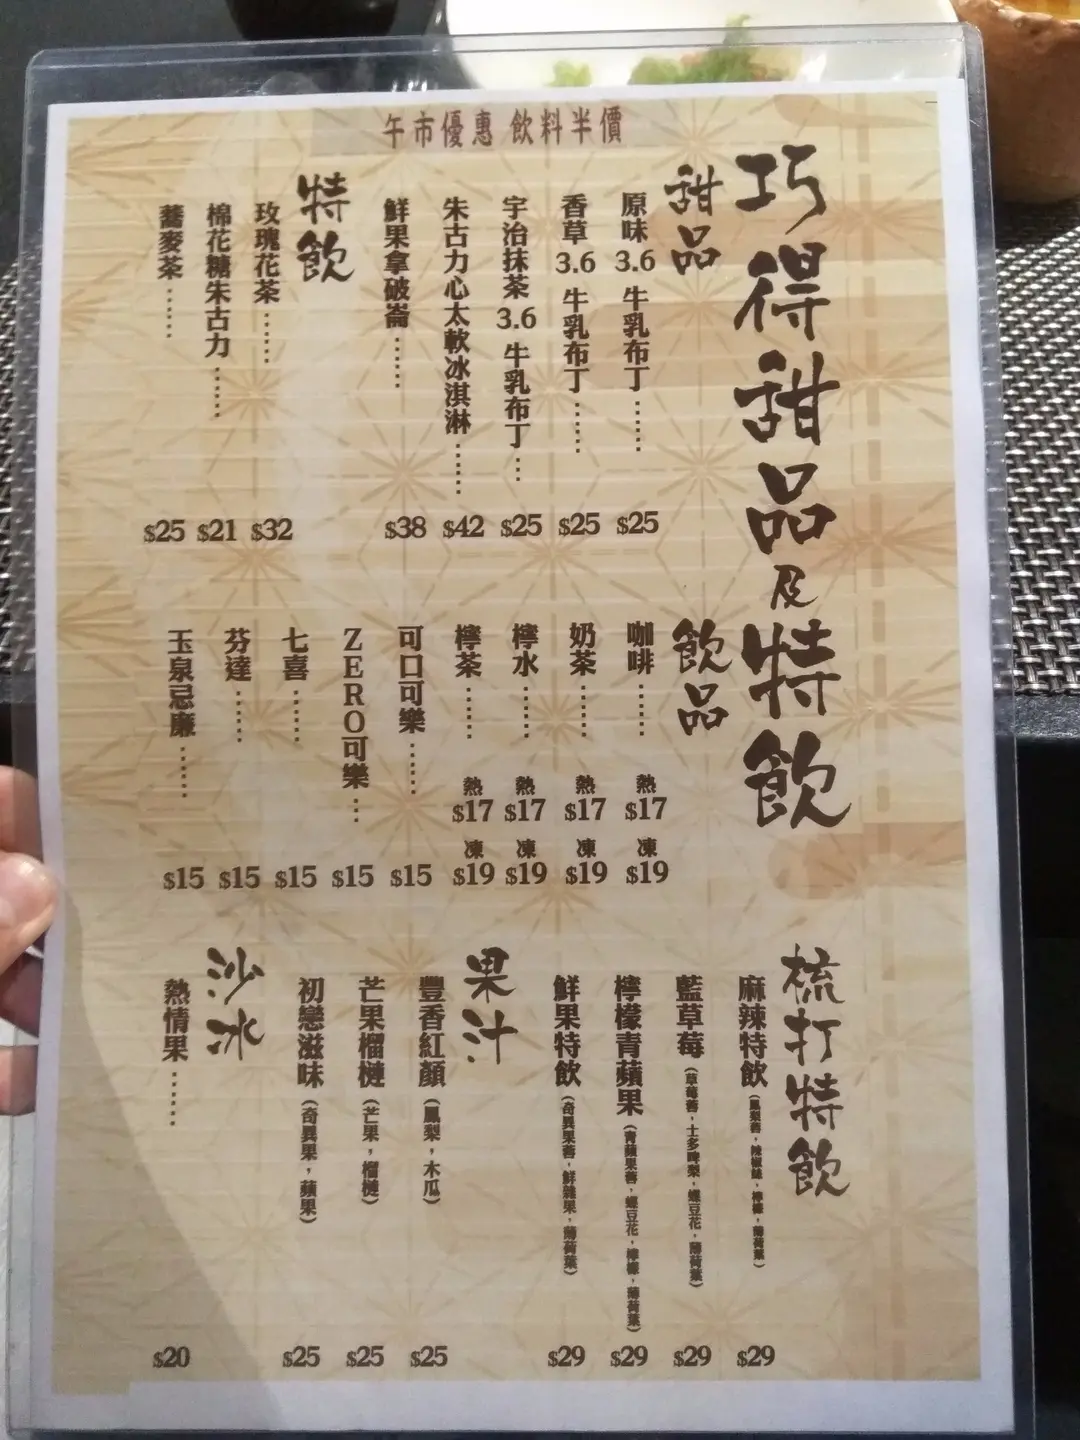 午市優惠 飲料半價
巧得甜品及特飲
甜品
原味3.6牛乳布丁…… $25
香草3.6牛乳布丁…… $25
宇治抹茶3.6牛乳布丁… $25
朱古力心太軟冰淇淋…… $42
鮮果拿破崙…… $38
特飲
玫瑰花茶…… $32
棉花糖朱古力…… $21
蕎麥茶…… $25
飲品
咖啡…… 熱$17 凍$19
奶茶…… 熱$17 凍$19
檸水…… 熱$17 凍$19
檸茶…… 熱$17 凍$19
可口可樂…… $15
ZERO可樂… $15
七喜…… $15
芬達…… $15
玉泉忌廉…… $15
梳打特飲
麻辣特飲(鳳梨蓉，辣椒絲，檸檬，薄荷葉) $29
藍草莓(草莓蓉，士多啤梨，蝶豆花，薄荷葉) $29
檸檬青蘋果(青蘋果蓉，蝶豆花，檸檬，薄荷葉) $29
鮮果特飲(奇異果蓉，鮮雜果，薄荷葉) $29
果汁
豐香紅顏(鳳梨，木瓜) $25
芒果榴槤(芒果，榴槤) $25
初戀滋味(奇異果，蘋果) $25
沙冰
熱情果…… $20